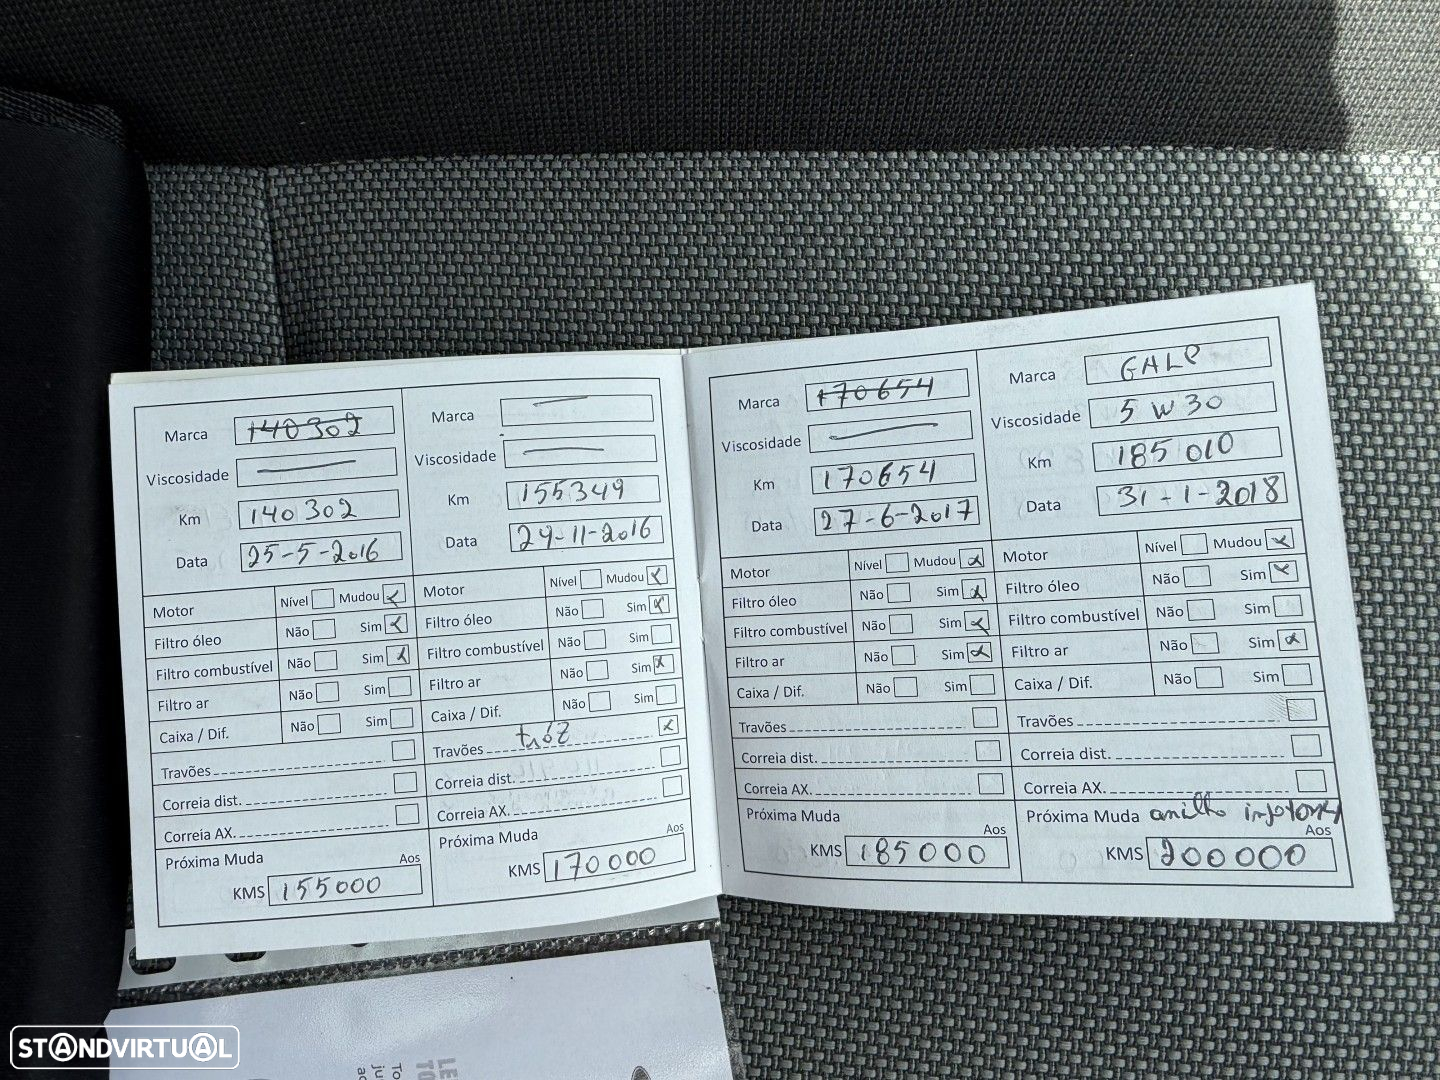 Marca 140302
Viscosidade
Km 140302
Data 25-5-2016
Motor Nível Mudou x
Filtro óleo Não Sim x
Filtro combustível Não Sim x
Filtro ar Não Sim
Caixa / Dif. Não Sim
Travões
Correia dist.
Correia AX.
Próxima Muda Aos
KMS 155000
Marca
Viscosidade
Km 155349
Data 24-11-2016
Motor Nível Mudou x
Filtro óleo Não Sim x
Filtro combustível Não Sim
Filtro ar Não Sim x
Caixa / Dif. Não Sim
Travões x
Correia dist.
Correia AX.
Próxima Muda Aos
KMS 170000
Marca 170654
Viscosidade
Km 170654
Data 27-6-2017
Motor Nível Mudou x
Filtro óleo Não Sim x
Filtro combustível Não Sim x
Filtro ar Não Sim x
Caixa / Dif. Não Sim
Travões
Correia dist.
Correia AX.
Próxima Muda Aos
KMS 185000
Marca GALP
Viscosidade 5W30
Km 185010
Data 31-1-2018
Motor Nível Mudou x
Filtro óleo Não Sim x
Filtro combustível Não Sim
Filtro ar Não Sim x
Caixa / Dif. Não Sim
Travões
Correia dist.
Correia AX.
Próxima Muda
Aos
KMS 200000
STANDVIRTUAL